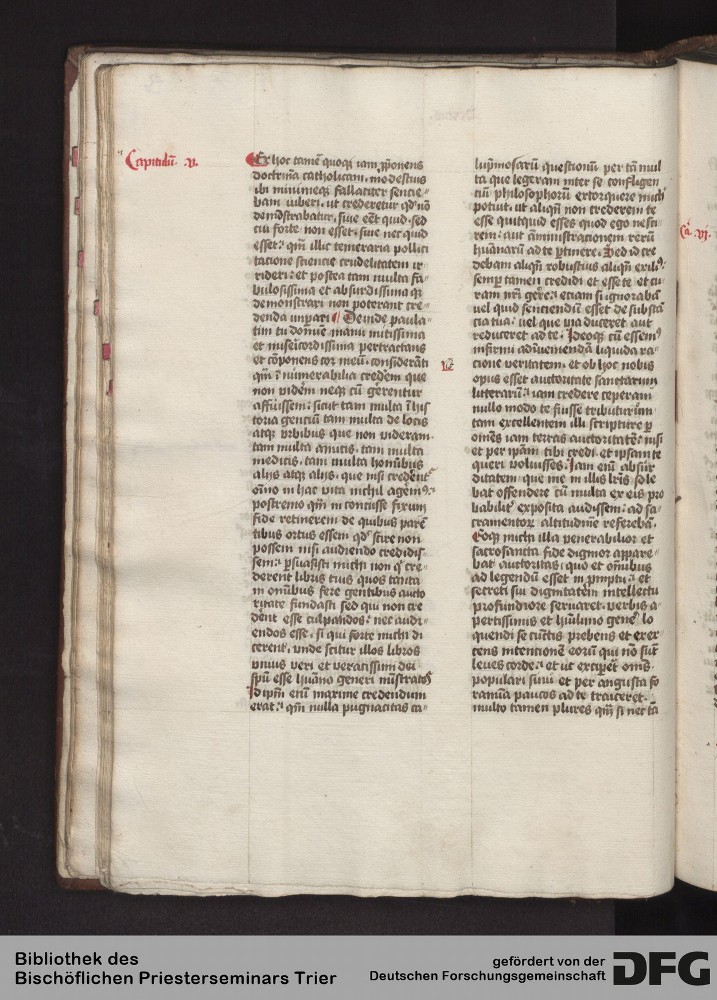 Capitulū .v.
Ex hoc tamē quoqꝫ iam p̄ponens
doctrinā catholicam. modestius
ibi minimeqꝫ fallaciter sencie-
bam iuberi. ut crederetur qd̓ nō
demōstrabatur. siue eēt quid. sed
cui forte non esset. siue nec quid
esset. qm̄ illic temeraria pollici
tacione sciencie crudelitatem ir
rideri. et postea tam multa fa-
bulosissima et absurdissima qꝫ
demonstrari non poterant cre-
denda imperari Deinde paula-
tim tu domīe manu mitissima
et miscīcordissima pertractans
et cōponens cor meū. considerāti
qm̄ īnumerabilia credem que
non vidēm neqꝫ cū gererentur
affuissem. sicut tam multa ī his
toria genciū tam multa de locis
atqꝫ vrbibus que non videram.
tam multa amicis. tam multa
medicis. tam multa hominibus
alijs atqꝫ alijs. que nisi credent᷑
oīno in hac vita nichil agem᷒.
postremo qm̄ inconcusse fixum
fide retinerem de quibus parē
tibus ortus essem qd̓ scire non
possem nisi audiendo credidis-
sem. p̱suasisti michi non q̇ cre-
derent libris tuis quos tanta
in omnibus fere gentibus aucto
ritate fundasti sed qui non cre
dent esse culpandos. nec audi-
endos esse. si qui forte michi di
cerent. vnde scitur illos libros
vnius veri et veracissimi dei
spū esse hūano generi mīstratos
Id ip̄m enī maxime credendum
erat. qm̄ nulla pugnacitas ca-
lūpniosarū questionū per tā mul
ta que legeram inter se confligen
ciū philosophorū extorquere michi
potuit. ut aliqn̄ non crederem te
esse quitquid esses quod ego nesci
rem. aut amministracionem rerū
hūanarū ad te p̱tinere. Sed id cre
debam aliqn̄ robustius aliqn̄ exili᷒.
semp̱ tamen credidi et esse te et cu
ram nr̄i gere. etiam si ignorabā
uel quid senciendū esset de substā
cia tua. uel que via duceret aut
reduceret ad te. Ideoqꝫ cū essem᷒
infirmi ad inueniendā liquida ra
cione veritatem. et ob hoc nobis
opus esset auctoritate sanctarum
litterarū. iam credere ceperam
nullo modo te fuisse tributurūm
tam excellentem illi scripture p̱
omēs iam terras auctoritatē. nisi
et per ip̄am tibi credi. et ipsam te
queri voluisses. Iam enī absur
ditatem. que me in illis lr̄is sole
bat offendere cū multa ex eis pro
babilit᷑ exposita audissem. ad sa-
cramentoꝝ altitudinē referebā.
Eoqꝫ michi illa venerabilior et
sacrosancta fide dignior appare-
bat auctoritas. quo et omībus
ad legendū esset in promptu. et
secreti sui dignitatem intellectu
profundiore seruaret. verbis a-
pertissimis et hūilimo gene᷑ lo
quendi se cūctis prebens et exer-
cens intencionē eorū qui nō sūt
leues corde. et ut exciperet omēs
populari sinu et per angusta fo
ramina paucos ad te traiceret.
multo tamen plures qm̄ si nec tā
Ca. vj.
Bibliothek des
Bischöflichen Priesterseminars Trier
gefördert von der
Deutschen Forschungsgemeinschaft
DFG